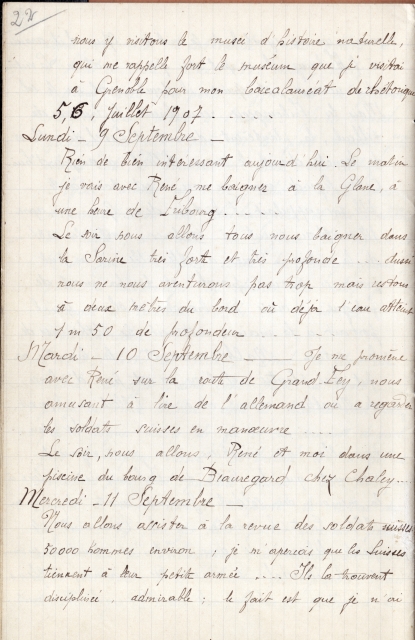 22
nous y visitons le musée d'histoire naturelle,
qui me rappelle fort le muséum que je visitai
à Grenoble pour mon baccalauréat de rhétorique
5, 6, Juillet 1907 . . . . .
Lundi - 9 Septembre -
Rien de bien interessant aujourd'hui. Le matin
je vais avec René me baigner à la Glane, à
une heure de Fribourg . . . . .
Le soir nous allons tous nous baigner dans
la Sarine très forte et très profonde . . . aussi
nous ne nous aventurons pas trop mais restons
à deux mètres du bord où déjà l'eau atteint
1 m 50 de profondeur . . . . .
Mardi - 10 Septembre - Je me promène
avec René sur la route de Grand-Fey, nous
amusant à lire de l'allemand ou a regarder
les soldats suisses en manœuvre ....
Le soir, nous allons, René et moi dans une
piscine du bourg de Beauregard chez Chaley...
Mercredi - 11 Septembre -
Nous allons assister à la revue des soldats suisses
50000 hommes environ ; je m'aperçois que les Suisses
tiennent à leur petite armée .... Ils la trouvent
disciplinée, admirable ; le fait est que je n'ai